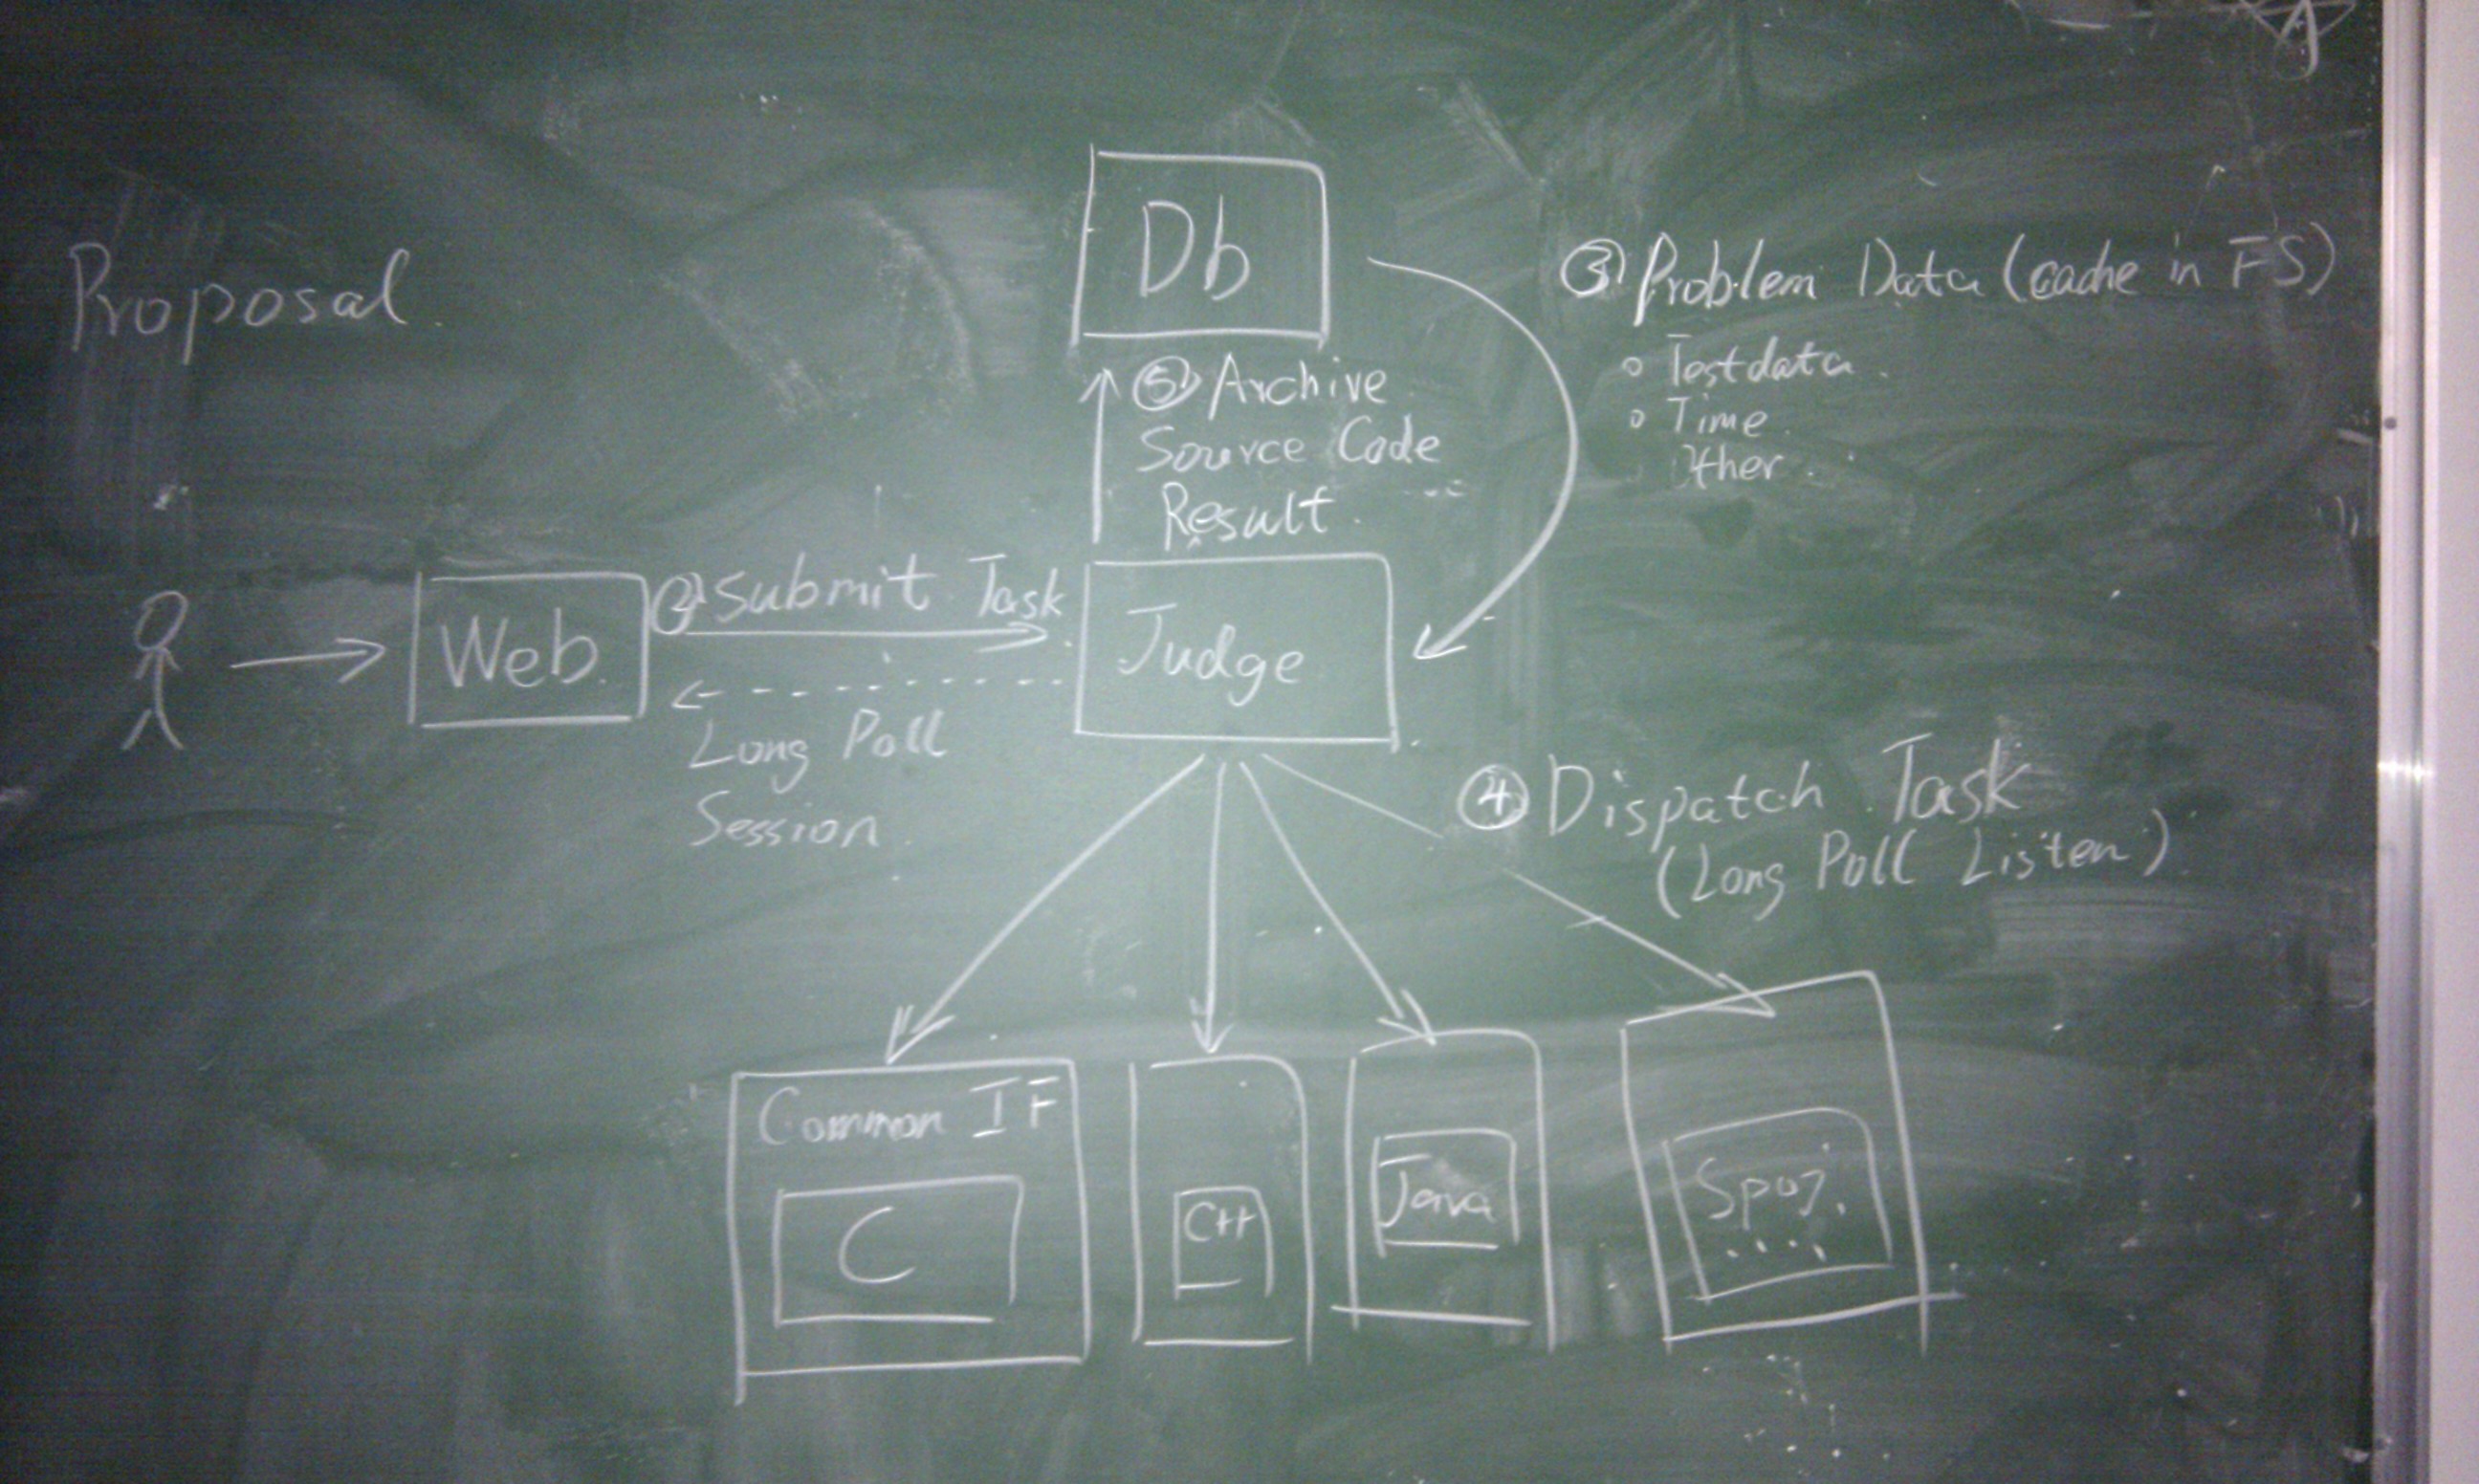 Proposal
Db
③ Problem Data (cache in FS)
○ Testdata
○ Time
Other
⑤ Archive
Source Code
Result
Web
② Submit Task
Long Poll
Session
Judge
④ Dispatch Task
(Long Poll Listen)
Common IF
C
C++
Java
Spoj
....